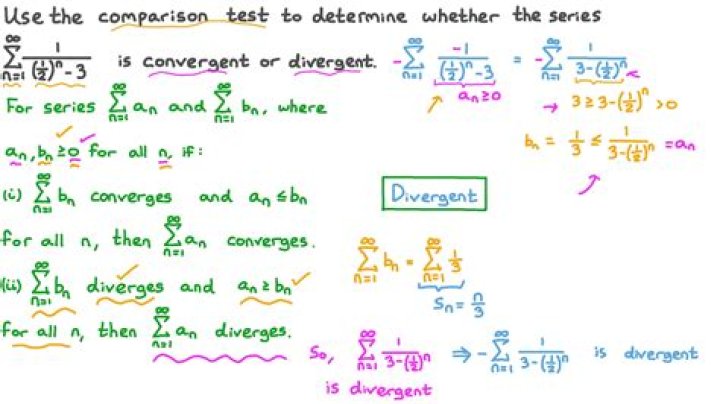 Use the comparison test to determine whether the series
∞∑n=1 1/((1/2)^n - 3) is convergent or divergent.
For series ∞∑n=1 an and ∞∑n=1 bn, where
an, bn ≥ 0 for all n, if:
(i) ∞∑n=1 bn converges and an ≤ bn
for all n, then ∞∑n=1 an converges.
(ii) ∞∑n=1 bn diverges and an ≥ bn
for all n, then ∞∑n=1 an diverges.
-∞∑n=1 -1/((1/2)^n - 3) = -∞∑n=1 1/(3-(1/2)^n)
an ≥ 0
→ 3 ≥ 3-(1/2)^n > 0
bn = 1/3 ≤ 1/(3-(1/2)^n) = an
Divergent
∞∑n=1 bn = ∞∑n=1 1/3
Sn = n/3
So, ∞∑n=1 1/(3-(1/2)^n) ⇒ -∞∑n=1 1/(3-(1/2)^n) is divergent
is divergent